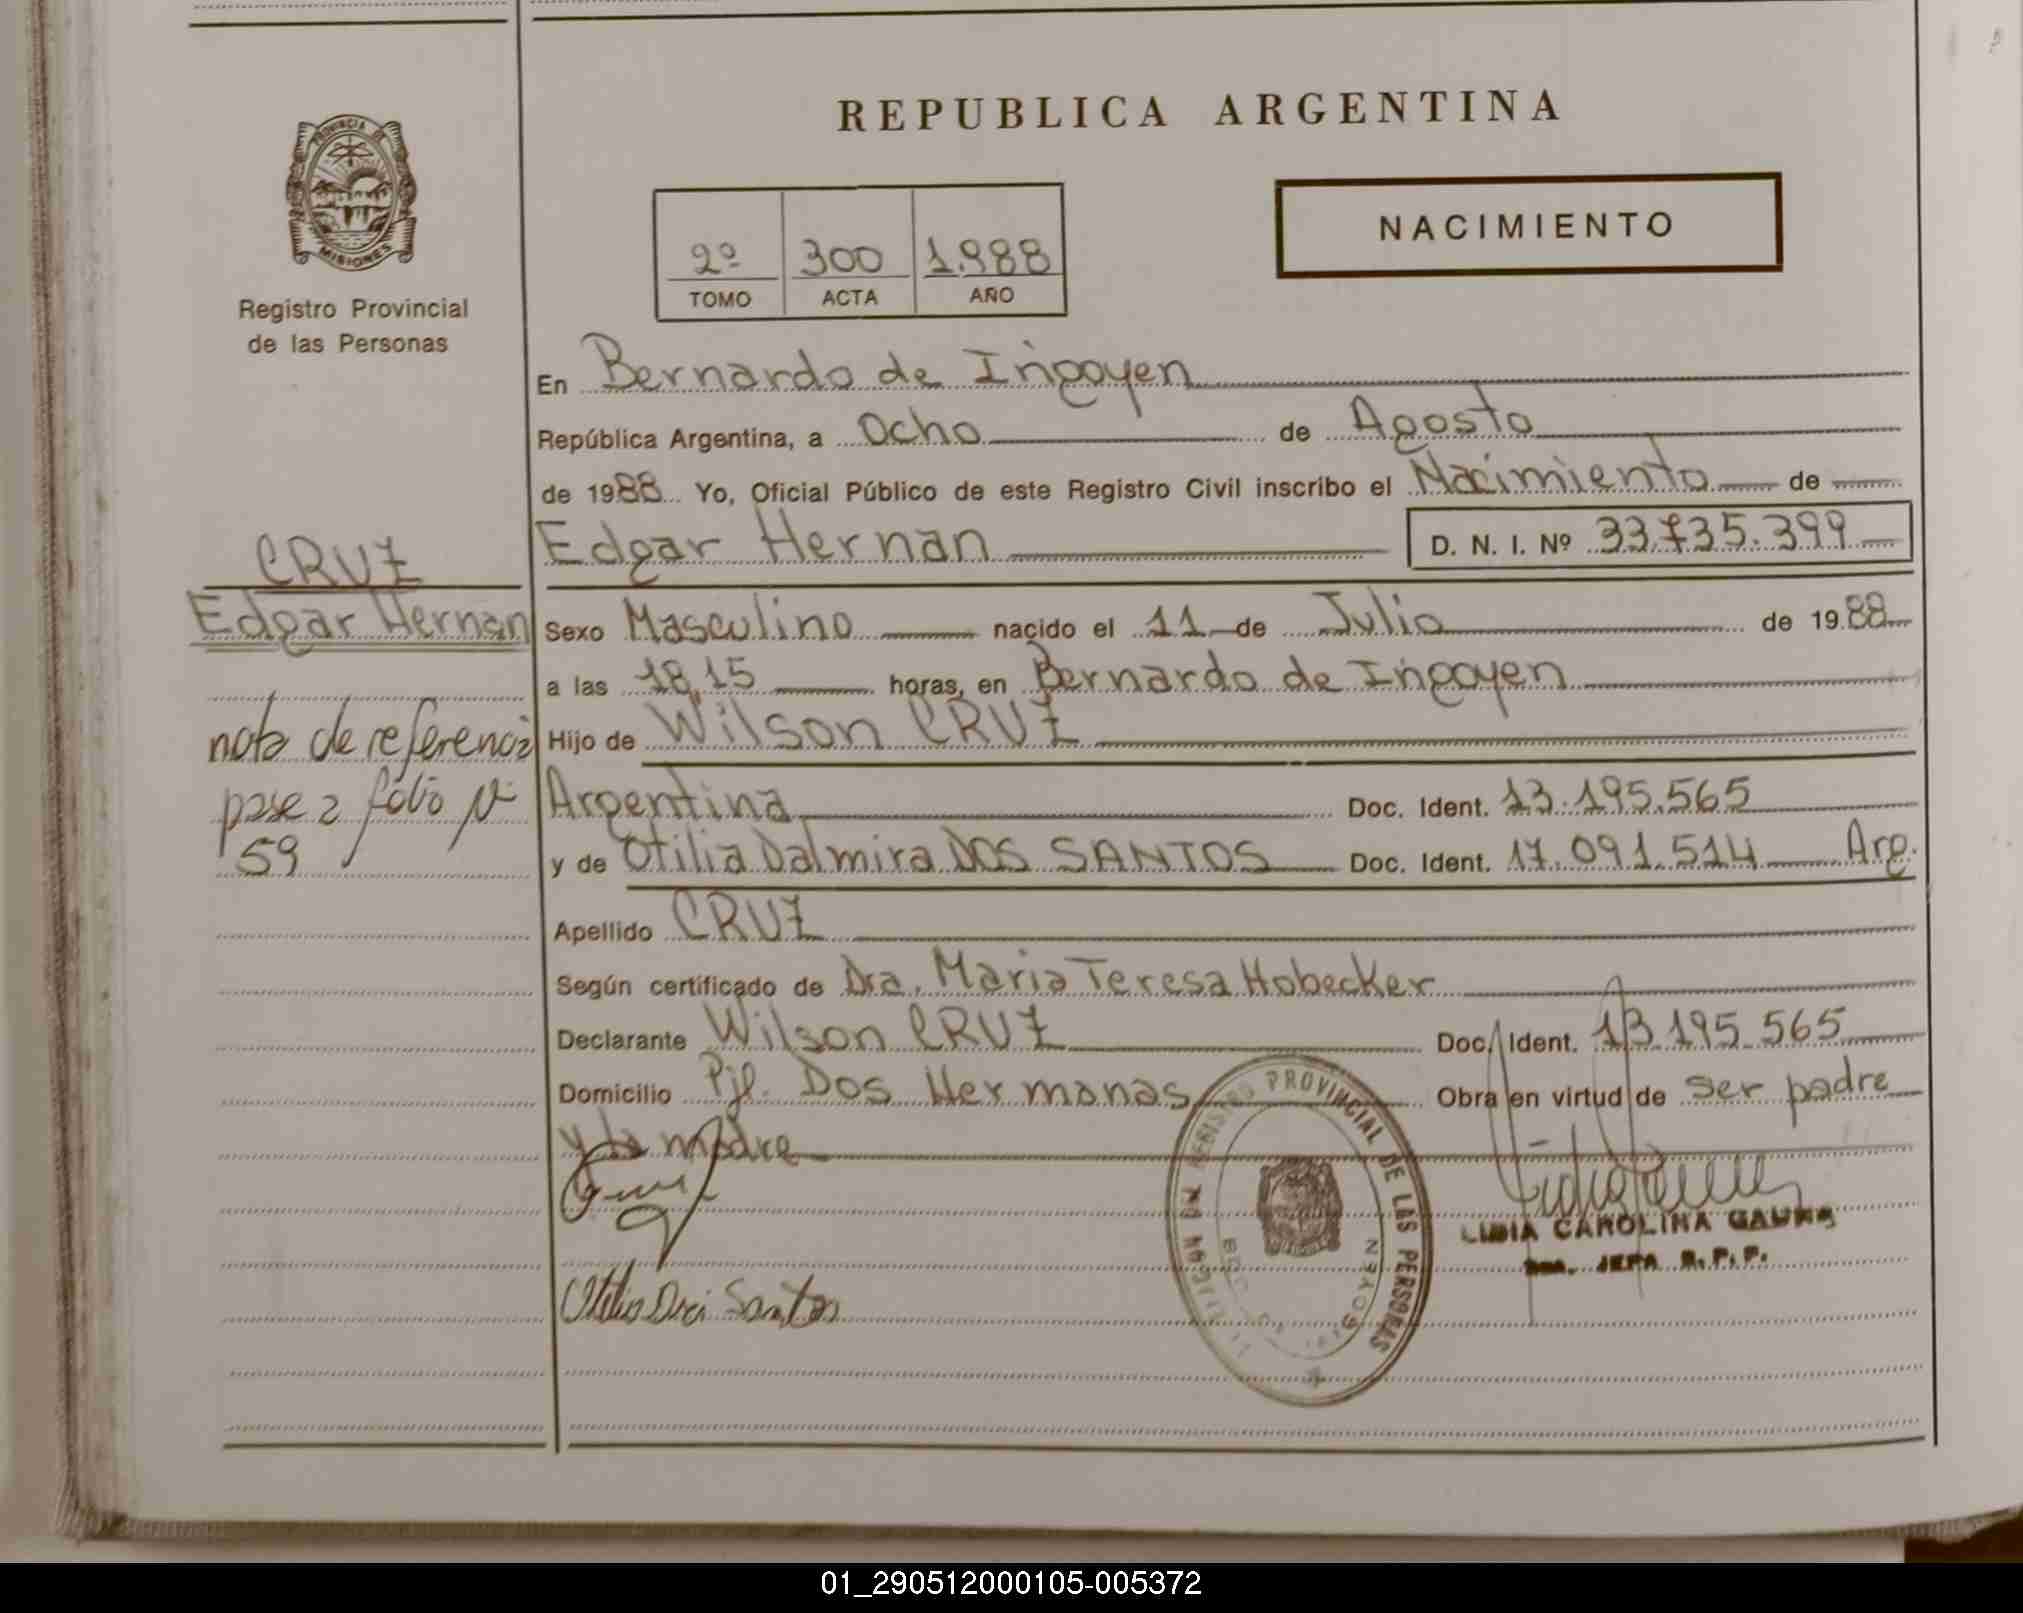 REPUBLICA ARGENTINA
PROVINCIA DE
MISIONES
Registro Provincial
de las Personas
NACIMIENTO
2º 300 1.988
TOMO ACTA AÑO
En Bernardo de Irigoyen
República Argentina, a Ocho de Agosto
de 1988 Yo, Oficial Público de este Registro Civil inscribo el Nacimiento de
Edgar Hernan D. N. I. Nº 33.735.399
CRUZ
Edgar Hernan
Sexo Masculino nacido el 11 de Julio de 1988
a las 18,15 horas, en Bernardo de Irigoyen
nota de referencia
pase a folio Nº
59
Hijo de Wilson CRUZ
Argentina Doc. Ident. 13.195.565
y de Otilia Dalmira DOS SANTOS Doc. Ident. 17.091.514 Arg.
Apellido CRUZ
Según certificado de Dra. Maria Teresa Hobecker
Declarante Wilson CRUZ Doc. Ident. 13.195.565
Domicilio Pje. Dos Hermanas Obra en virtud de ser padre
y la madre
REGISTRO PROVINCIAL DE LAS PERSONAS
LIDIA CAROLINA
JEFA R. P. P.
Santos
01_290512000105-005372